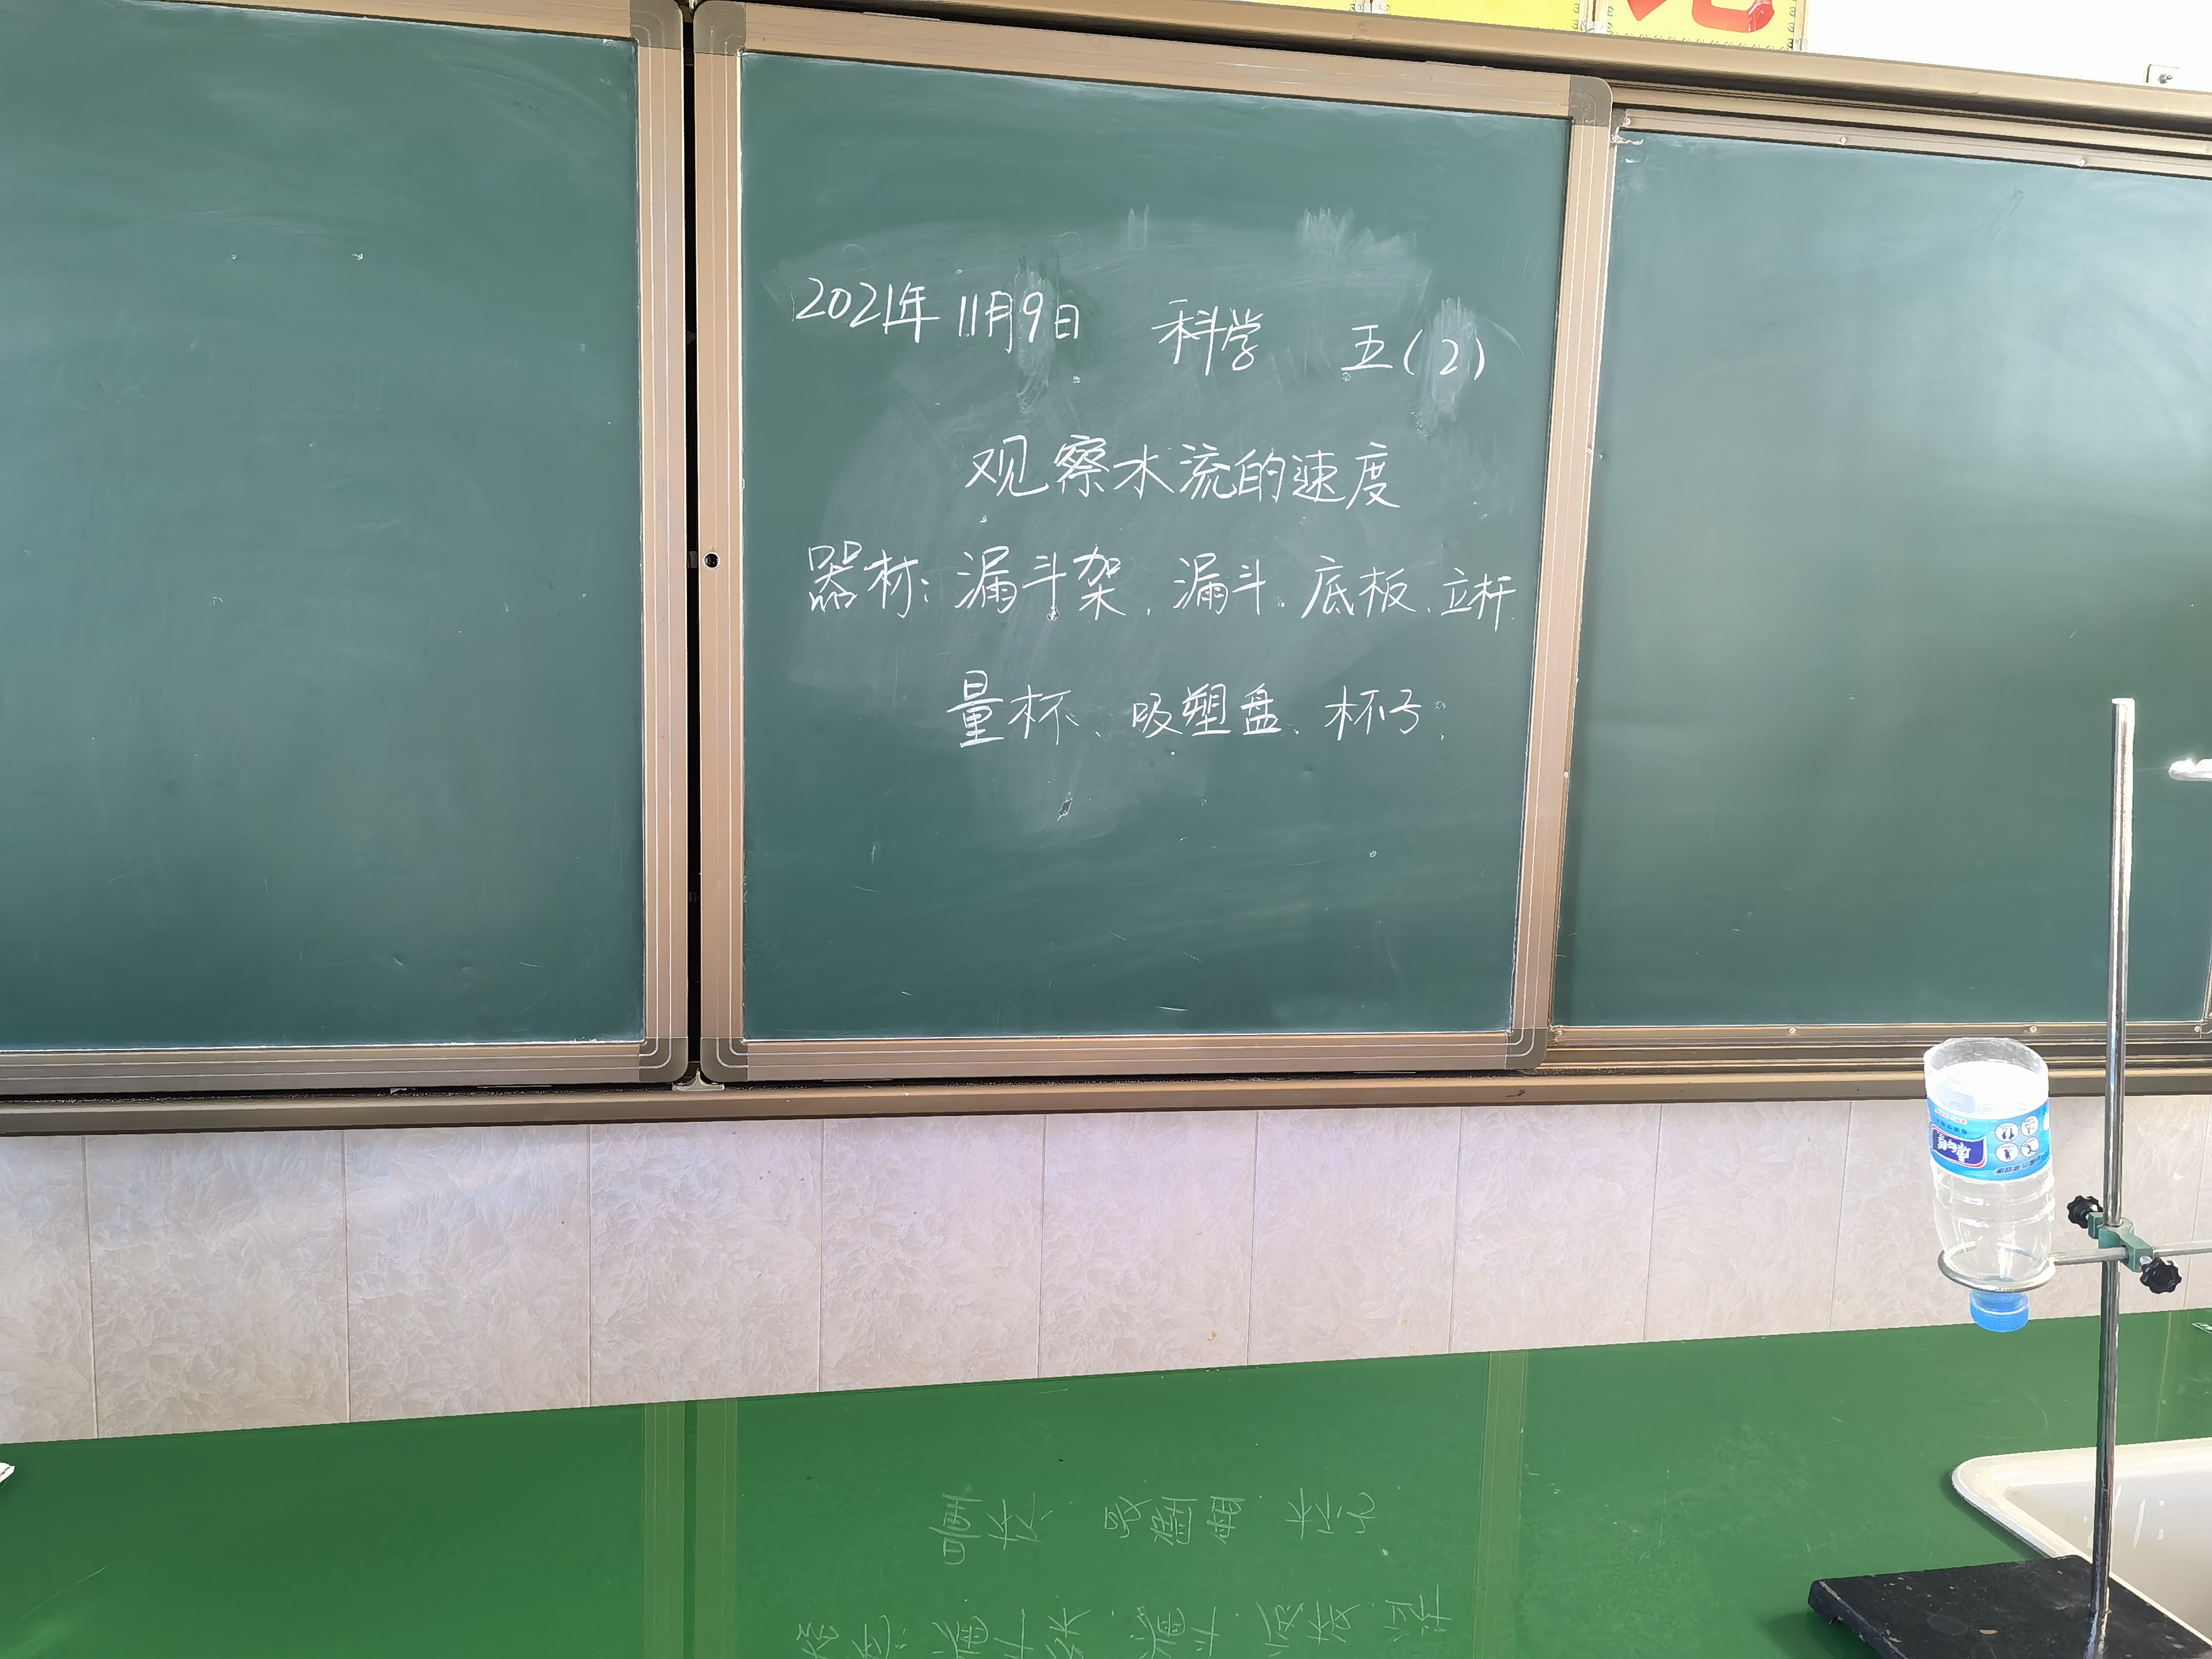 2021年11月9日 科学 五(2)
观察水流的速度
器材:漏斗架、漏斗、底板、立杆
量杯、吸塑盘、杯号、